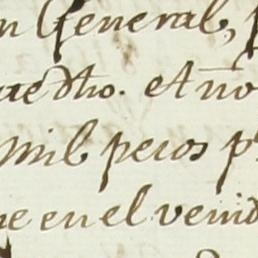 n General, p
ue dho. et año
mil pesos pr
ne en el venid